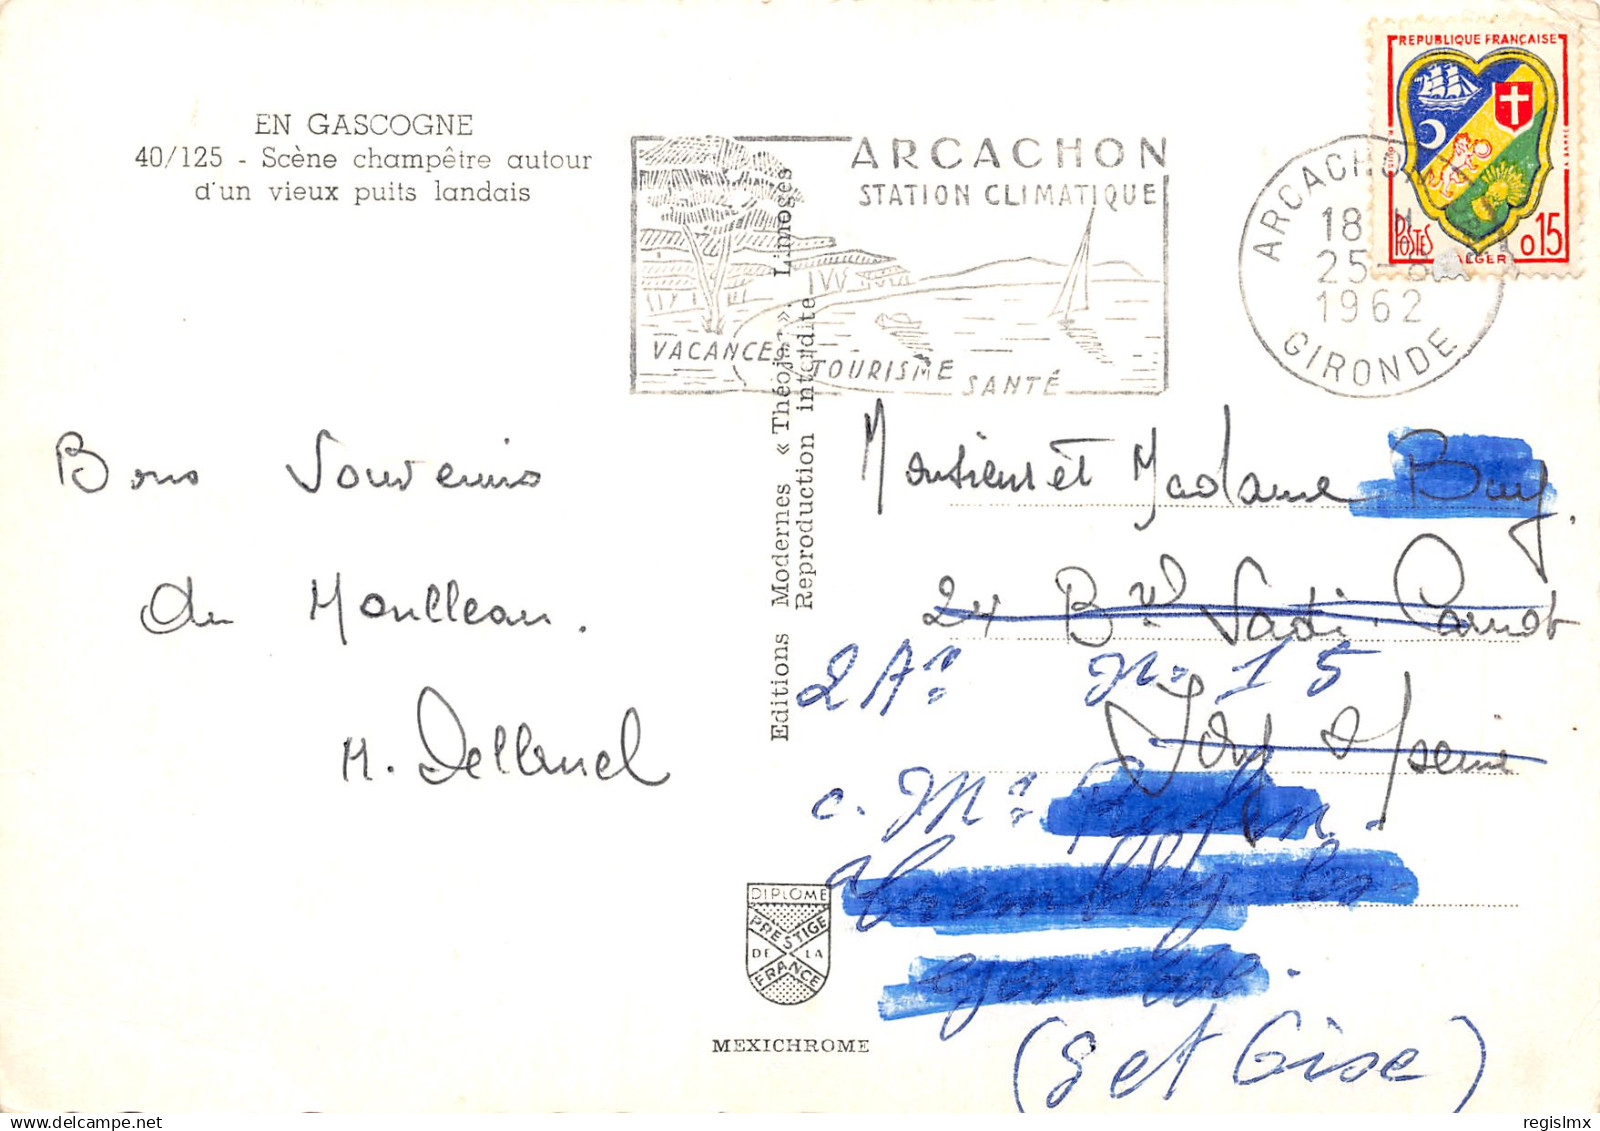 EN GASCOGNE
40/125 - Scène champêtre autour
d'un vieux puits landais
ARCACHON
STATION CLIMATIQUE
VACANCES TOURISME SANTÉ
ARCACHON
18 H
25-8
1962
GIRONDE
REPUBLIQUE FRANÇAISE
POSTES
ALGER
0,15
Bons Souvenirs
du Moulleau.
M.
Editions Modernes « Théojac », Limoges
Reproduction interdite
Monsieur et Madame Buy.
24 Bvd Sadi-Carnot
2 Ar. No 15
Ivry s/ Seine
c. Mr
(S et Oise)
DIPLOME
PRESTIGE
DE LA
FRANCE
MEXICHROME
regislmx